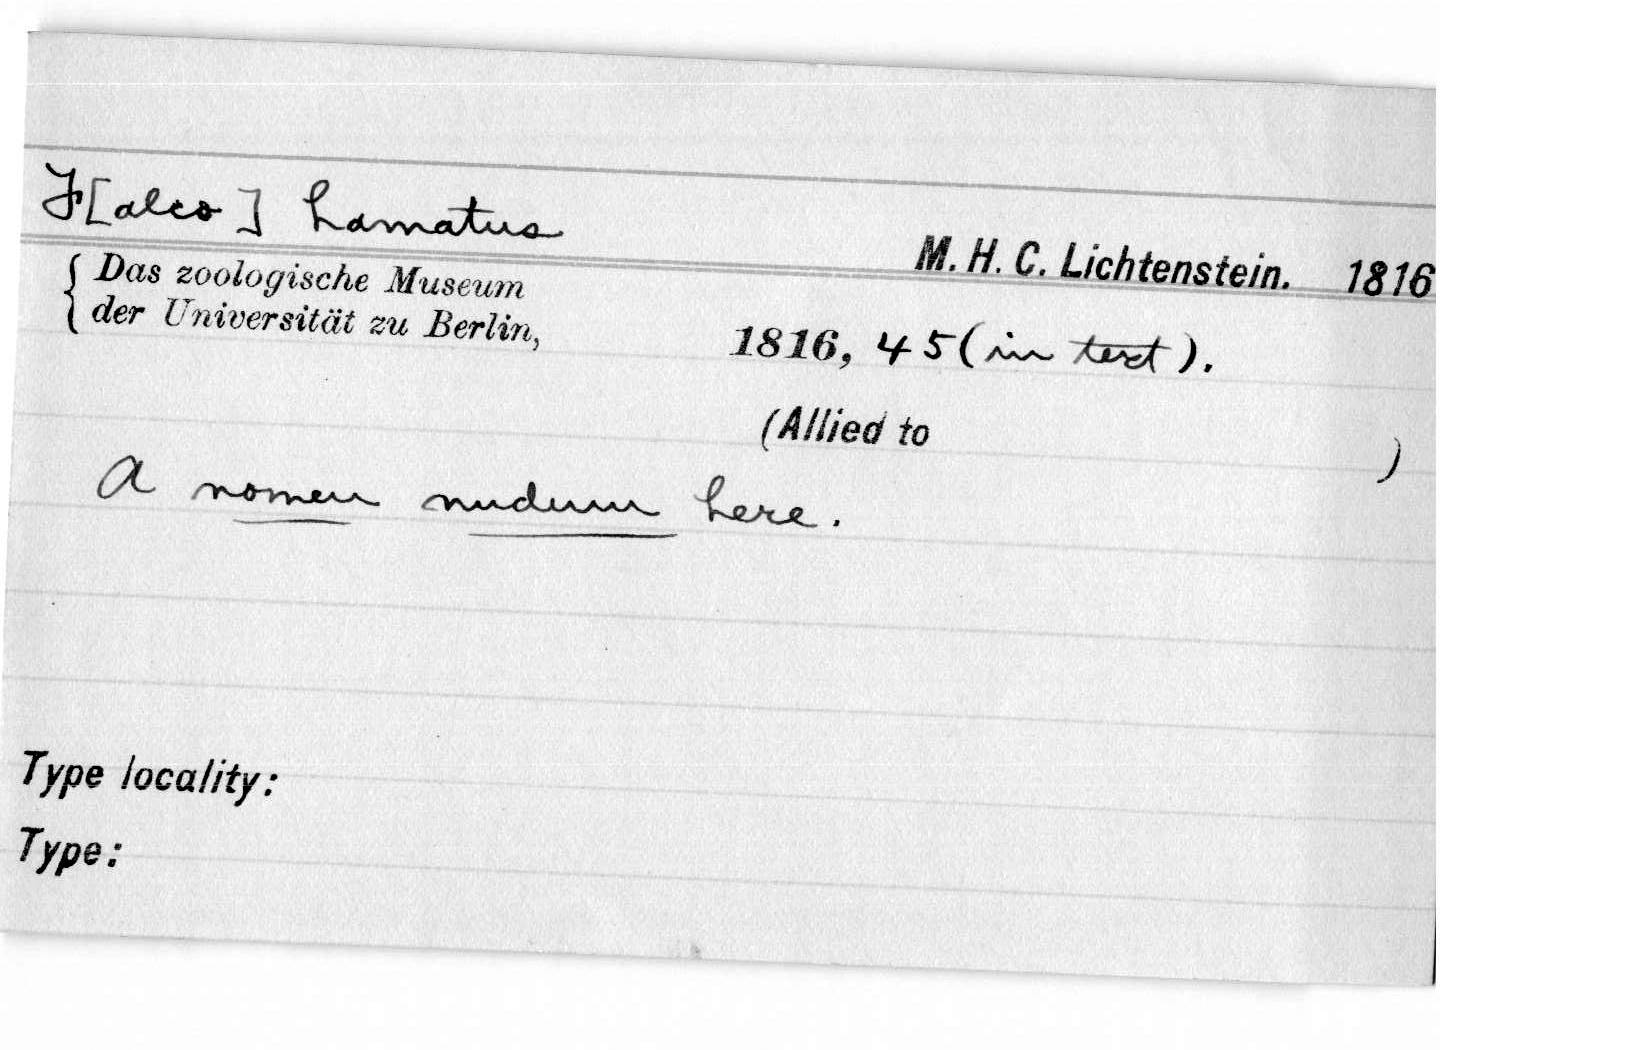 F[alco] hamatus
M. H. C. Lichtenstein. 1816
Das zoologische Museum
der Universität zu Berlin,
1816, 45 (in text).
(Allied to )
A nomen nudum here.
Type locality:
Type: